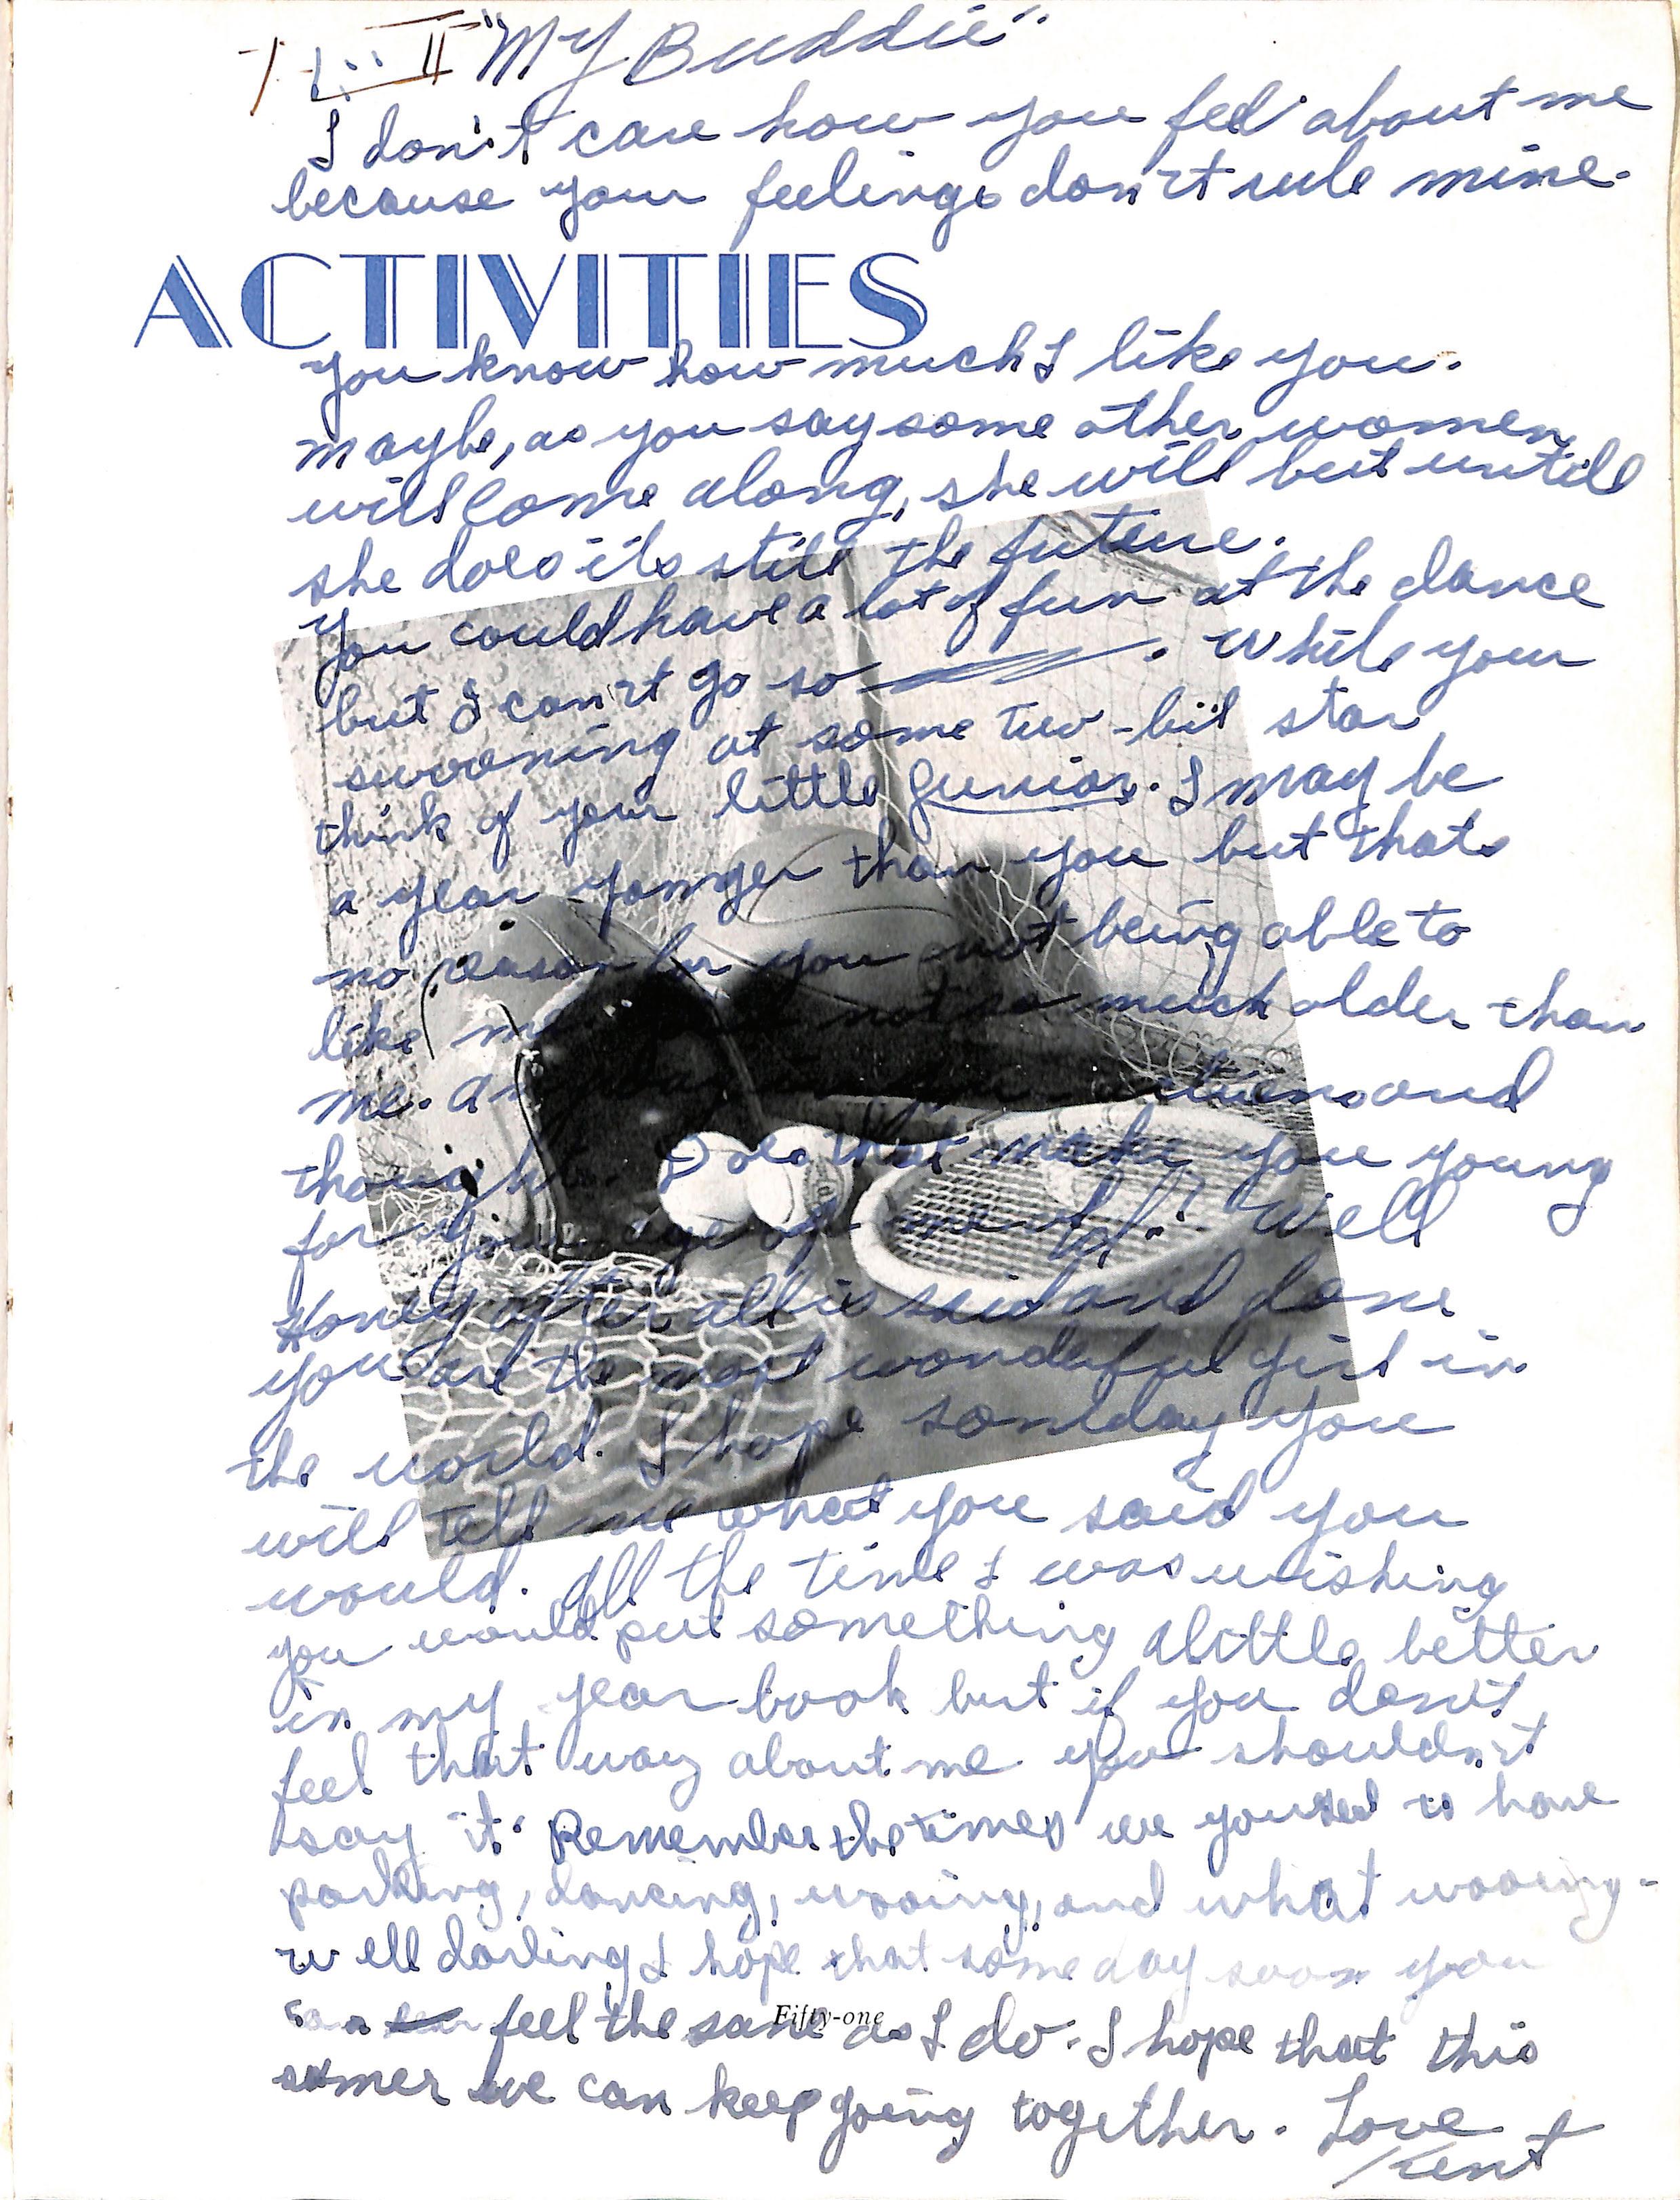 II "My Buddie"
I don't care how you feel about me
because your feelings don't rule mine.
ACTIVITIES
you know how much I like you.
maybe, as you say some other women
will come along, she will but untill
she does its still the future.
You could have a lot of fun at the dance
but I can't go so . While your
swooning at some two-bit star
think of your little Junior. I may be
a year yonger than you but thats
no reason for you not being able to
like me not so much older than
me. and
thought. Does that make you young
for your age or me old. Well
Honey after all is said and done
you are the most wonderful girl in
the world. I hope someday you
will tell me what you said you
would. All the time I was wishing
you would put something alittle better
in my year book but if you don't
feel that way about me you shouldn't
say it. Remember the times we youssed to have
parking, dancing, wooing, and what wooing-
well darling I hope that some day soon you
can feel the same as I do. I hope that this
Fifty-one
sumer we can keep going together. Love